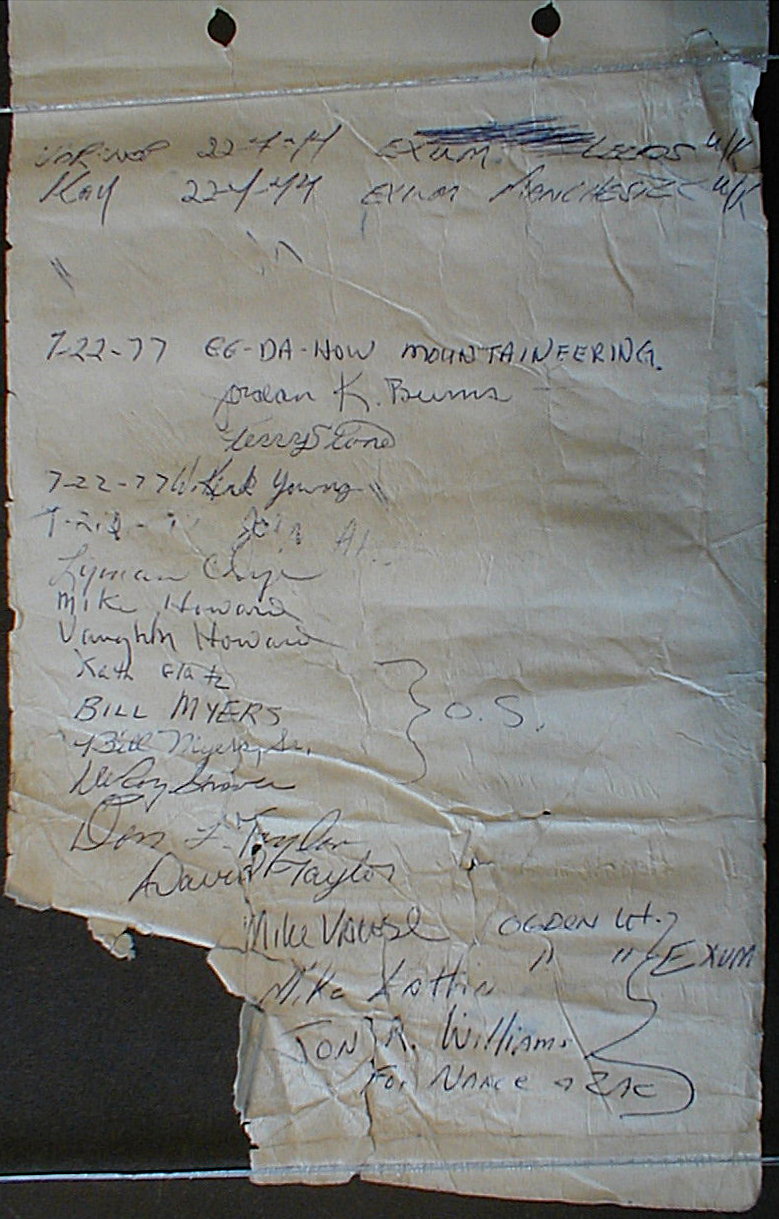 22-7-77 EXUM. LEEDS U/K
Ray 22-7-77 EXUM MANCHESTER U/K
7-22-77 EE-DA-HOW MOUNTAINEERING.
Jordan K. Burns
Terry Stone
7-22-77 W. Kirk Young
Lyman
Mike Howard
Vaughn Howard
Kath
BILL MYERS O.S.
Bill Myers, Sr.
DeRoy
Don L. Taylor
David Taylor
Mike Vause OGDEN Ut.
Mike " " EXUM
JON R. Williams
For NANCE & ZAC